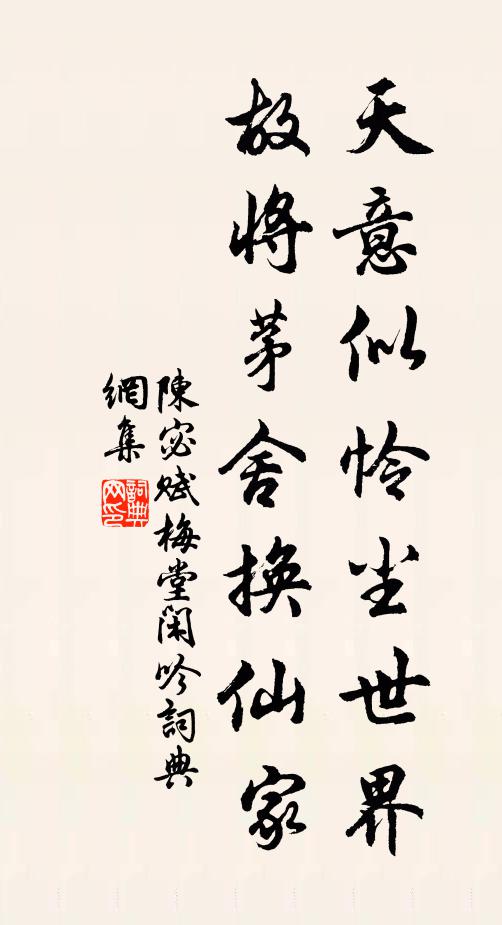 天意似怜尘世界
故将茅舍换仙家
陳宓赋梅堂閑吟詞典
網集
詞典
网印